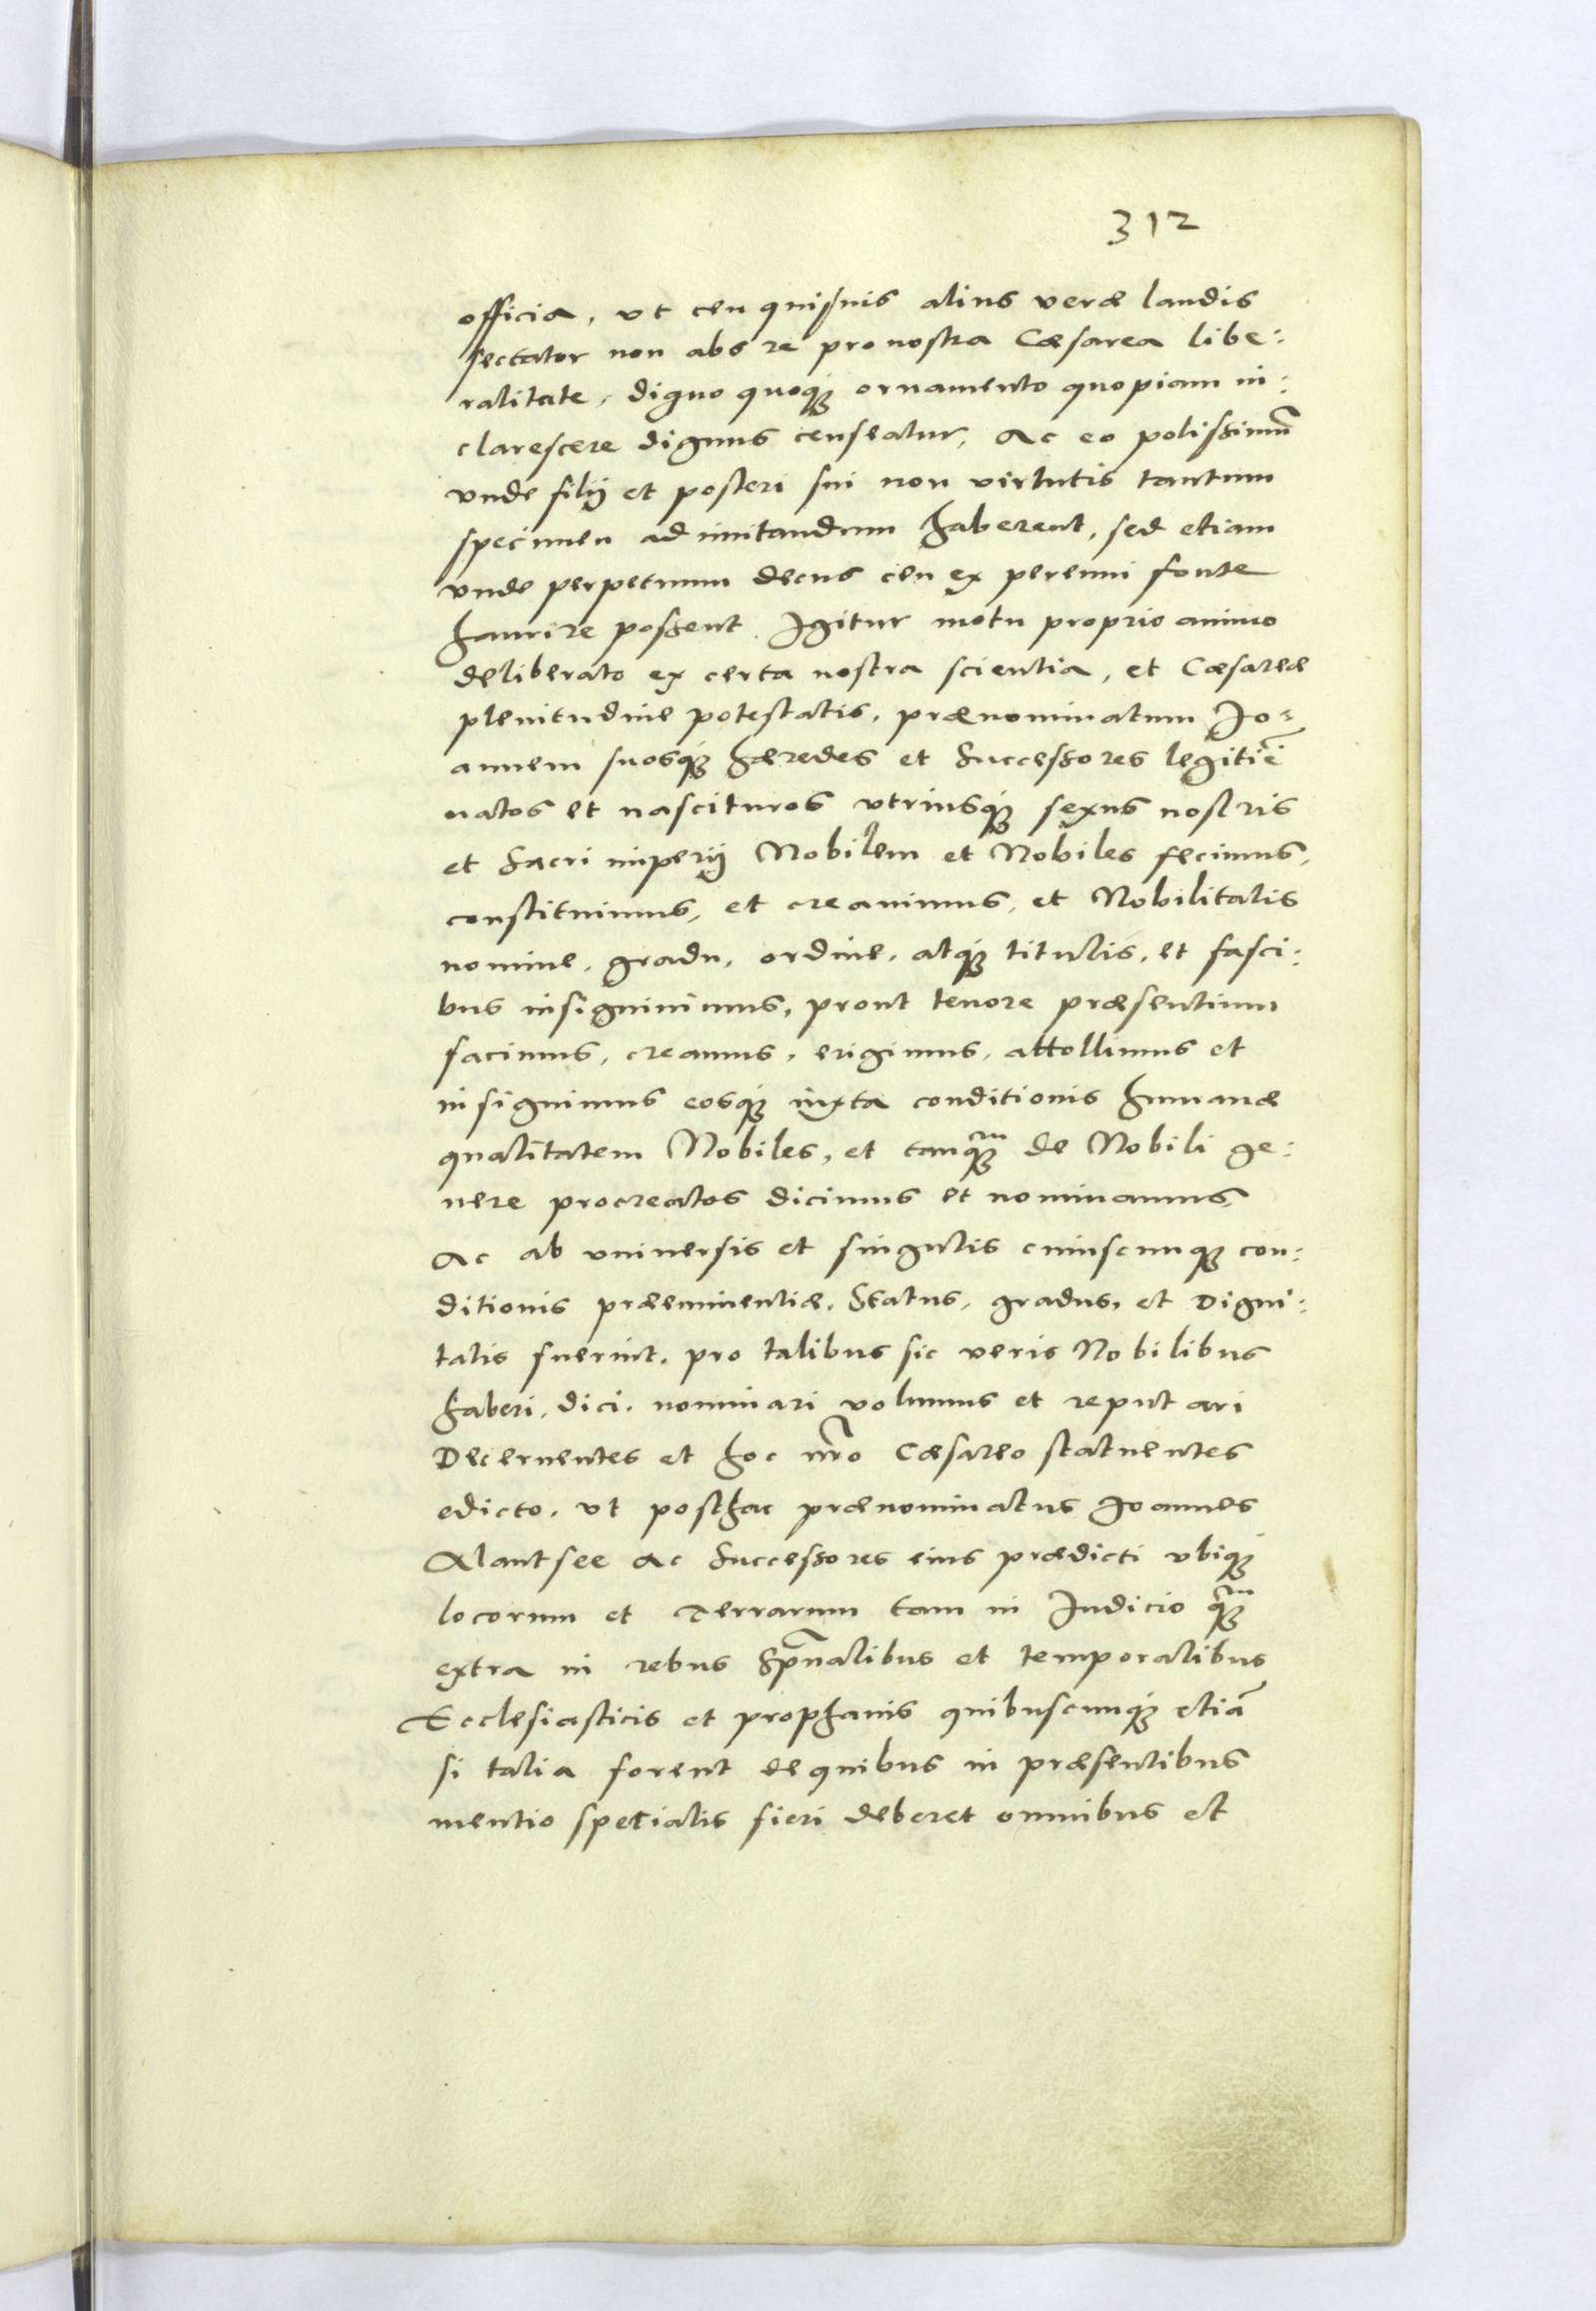 312
officia, ut ceu quisuis alius veræ laudis
sectator non abs re pro nostra Cæsarea libe:
ralitate, digno quoq; ornamento quopiam in:
clarescere dignus censeatur, Ac eo potissimũ
unde filij et posteri sui non virtutis tantum
specimen ad imitandum haberent, sed etiam
unde perpetuum decus ceu ex perenni fonte
haurire possent. Igitur motu proprio animo
deliberato ex certa nostra scientia, et Cæsareæ
plenitudine potestatis, prænominatum Jo=
annem suosq; hæredes et Successores legitiẽ
natos et nascituros utriusq; sexus nostris
et Sacri imperij Nobilem et Nobiles fecimus,
constituimus, et creauimus, et Nobilitatis
nomine, gradu, ordine, atq; titulis, et fasci:
bus insigniuimus, prout tenore præsentium
facimus, creamus, erigimus, attollimus et
insignimus eosq; iuxta conditionis humanæ
qualitatem Nobiles, et tanq̃ de Nobili ge:
nere procreatos dicimus et nominamus,
Ac ab uniuersis et singulis cuiuscunq; con:
ditionis præeminentiæ, Status, gradus, et Digni:
tatis fuerint, pro talibus sic veris Nobilibus
haberi, dici, nominari volumus et reputari
Decernentes et hoc nr̃o Cæsareo statuentes
edicto, ut posthac prænominatus Joannes
Alantsee Ac Successores eius prædicti ubiq;
locorum et Terrarum tam in Judicio q̃
extra in rebus Sp̃ualibus et temporalibus
Ecclesiasticis et prophanis quibuscunq; etiã
si talia forent de quibus in præsentibus
mentio specialis fieri deberet omnibus et